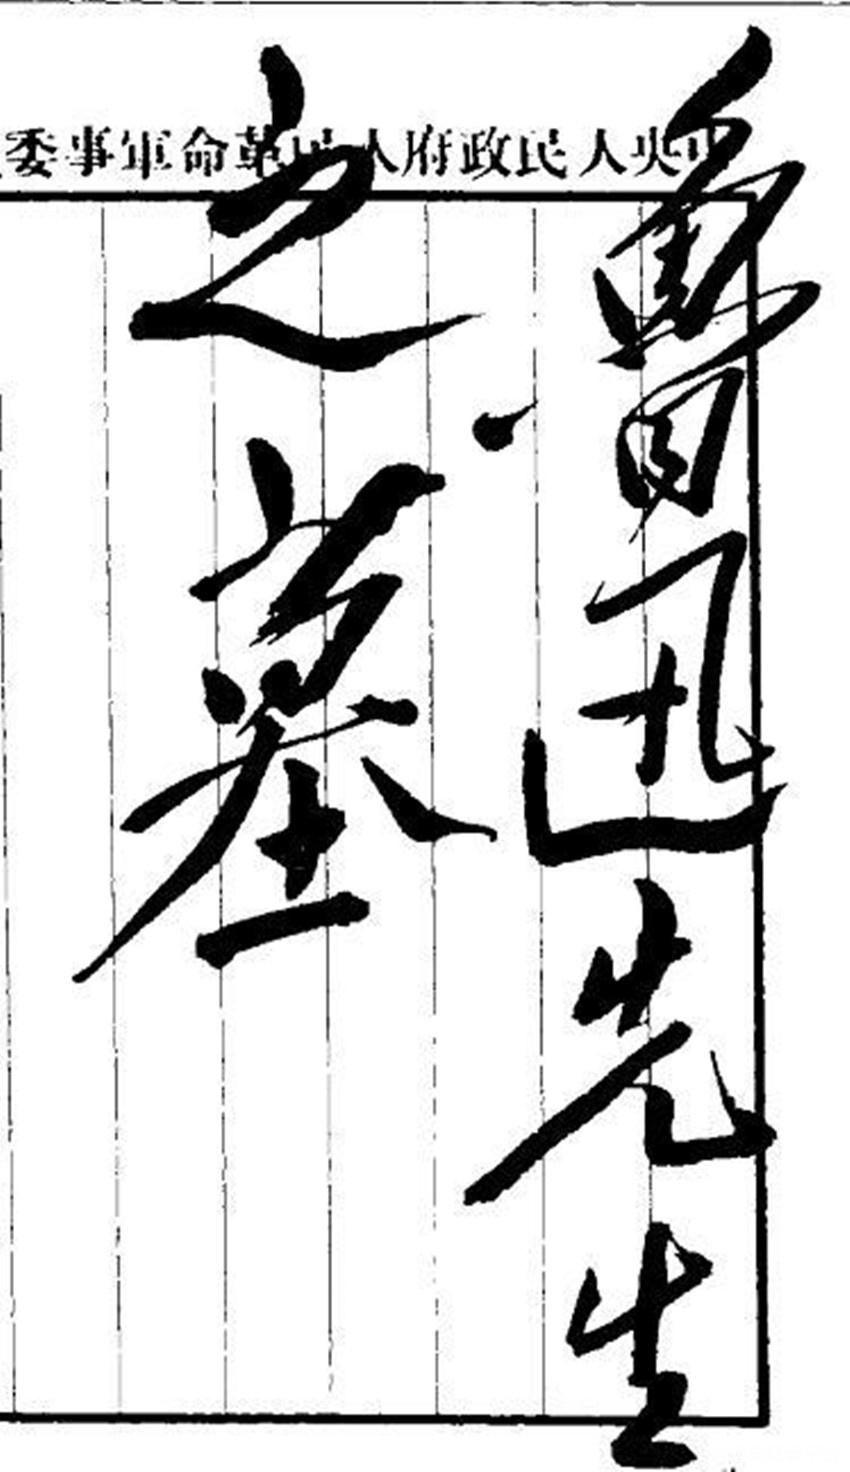 中央人民政府人民革命軍事委
魯迅先生
之墓